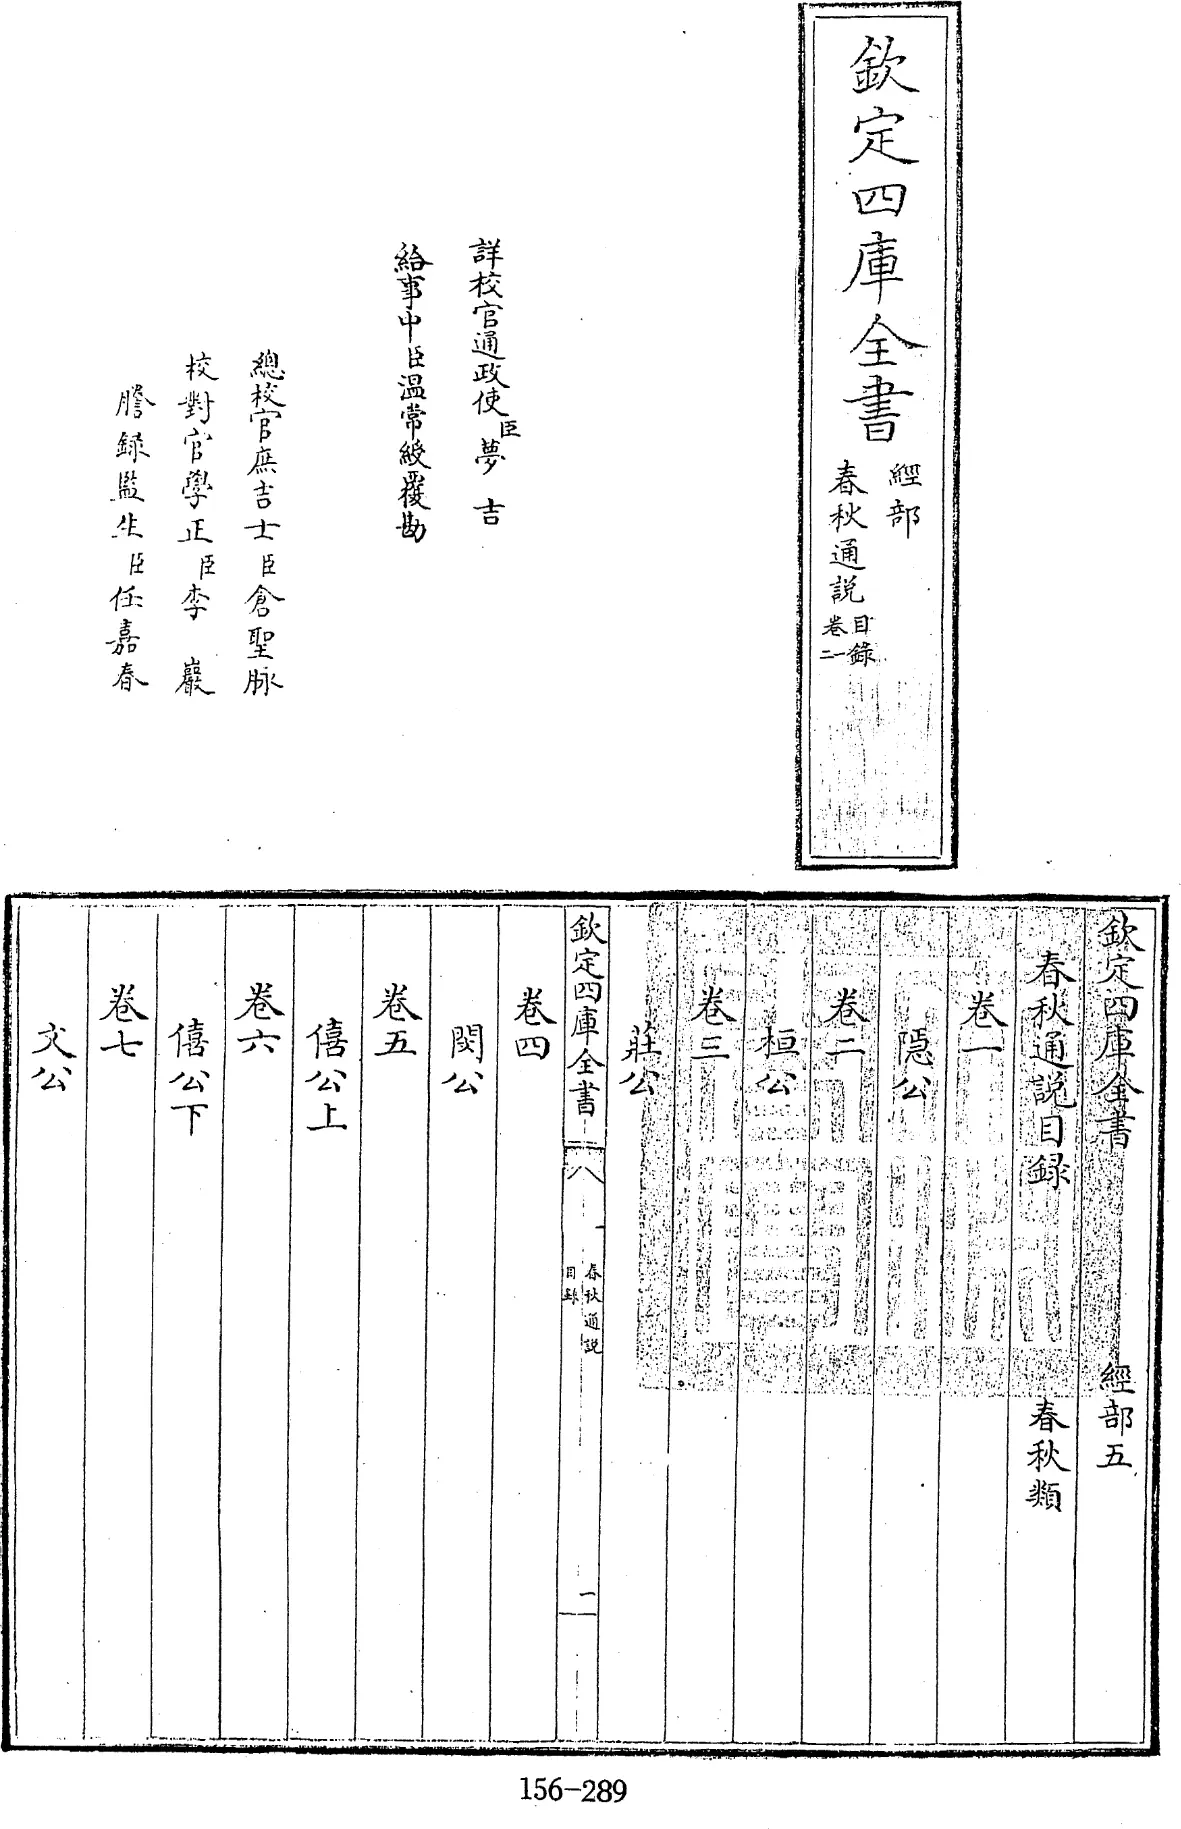 欽定四庫全書
經部
春秋通說
目錄
卷一
二
詳校官通政使臣夢吉
給事中臣溫常綬覆勘
總校官庶吉士臣倉聖脉
校對官學正臣李巖
謄錄監生臣任嘉春
欽定四庫全書 經部五
春秋通說目錄 春秋類
卷一
隱公
卷二
桓公
卷三
莊公
欽定四庫全書
春秋通說
目錄
一
卷四
閔公
卷五
僖公上
卷六
僖公下
卷七
文公
156-289